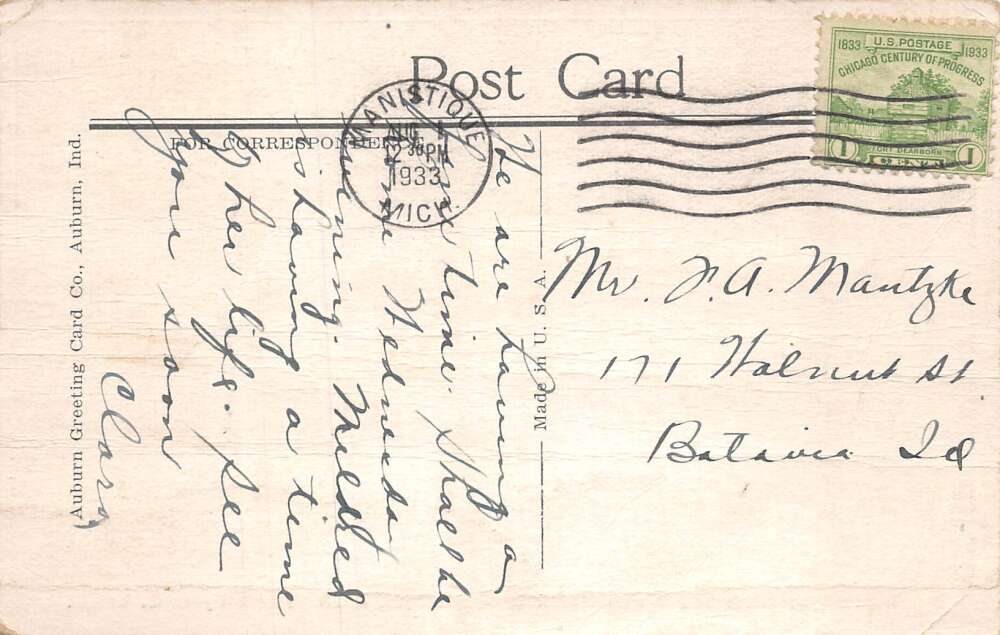 Post Card
FOR CORRESPONDENCE
MANISTIQUE
AUG
12 30 PM
1933
MICH.
1833 U.S. POSTAGE 1933
CHICAGO CENTURY OF PROGRESS
FORT DEARBORN
1 CENT 1
We are having a
fine time. Shall be
home Wednesday
evening. Mildred
is having a time
of her life. See
you soon
Clara
Made in U. S. A.
(Auburn Greeting Card Co., Auburn, Ind.
Mr. F. A. Mantzke
171 Walnut St
Batavia Ill